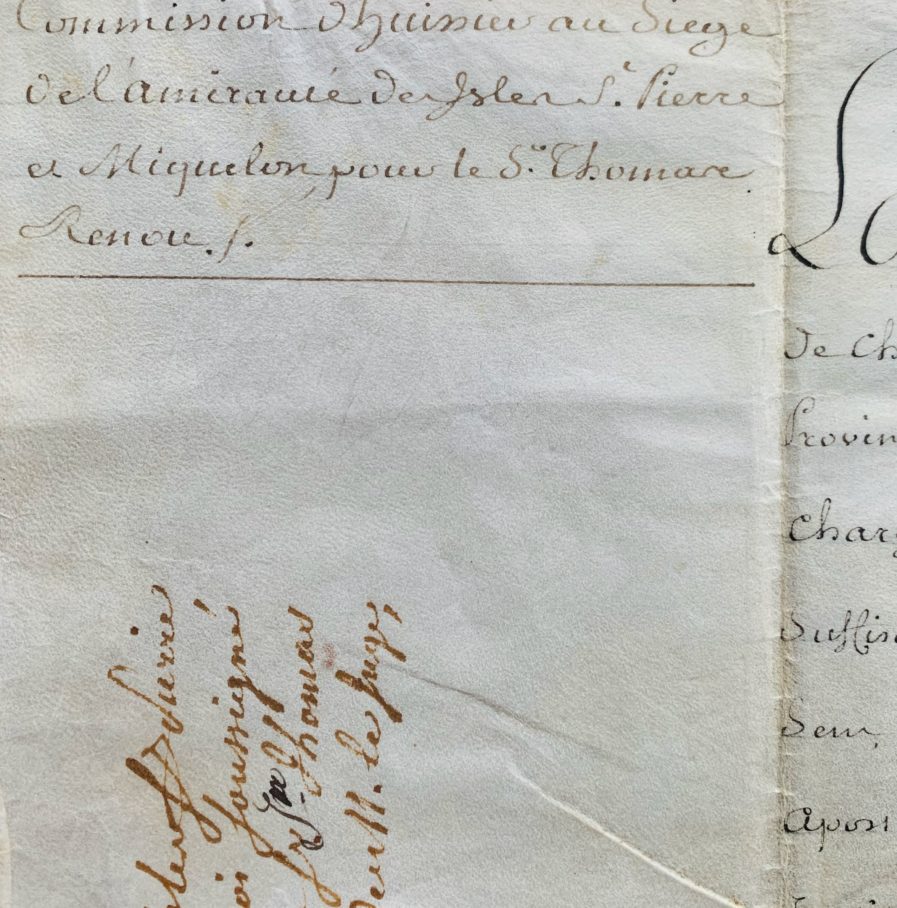 Commission d'huissier au Siege
de l'amirauté des Isles St. Pierre
et Miquelon, pour le Sr. Thomas
Renou ./.
L
de Ch
Provin
Charg
Suffis
Seur,
apost
St pierre
soussigné
Thomas
de M. le Juge,